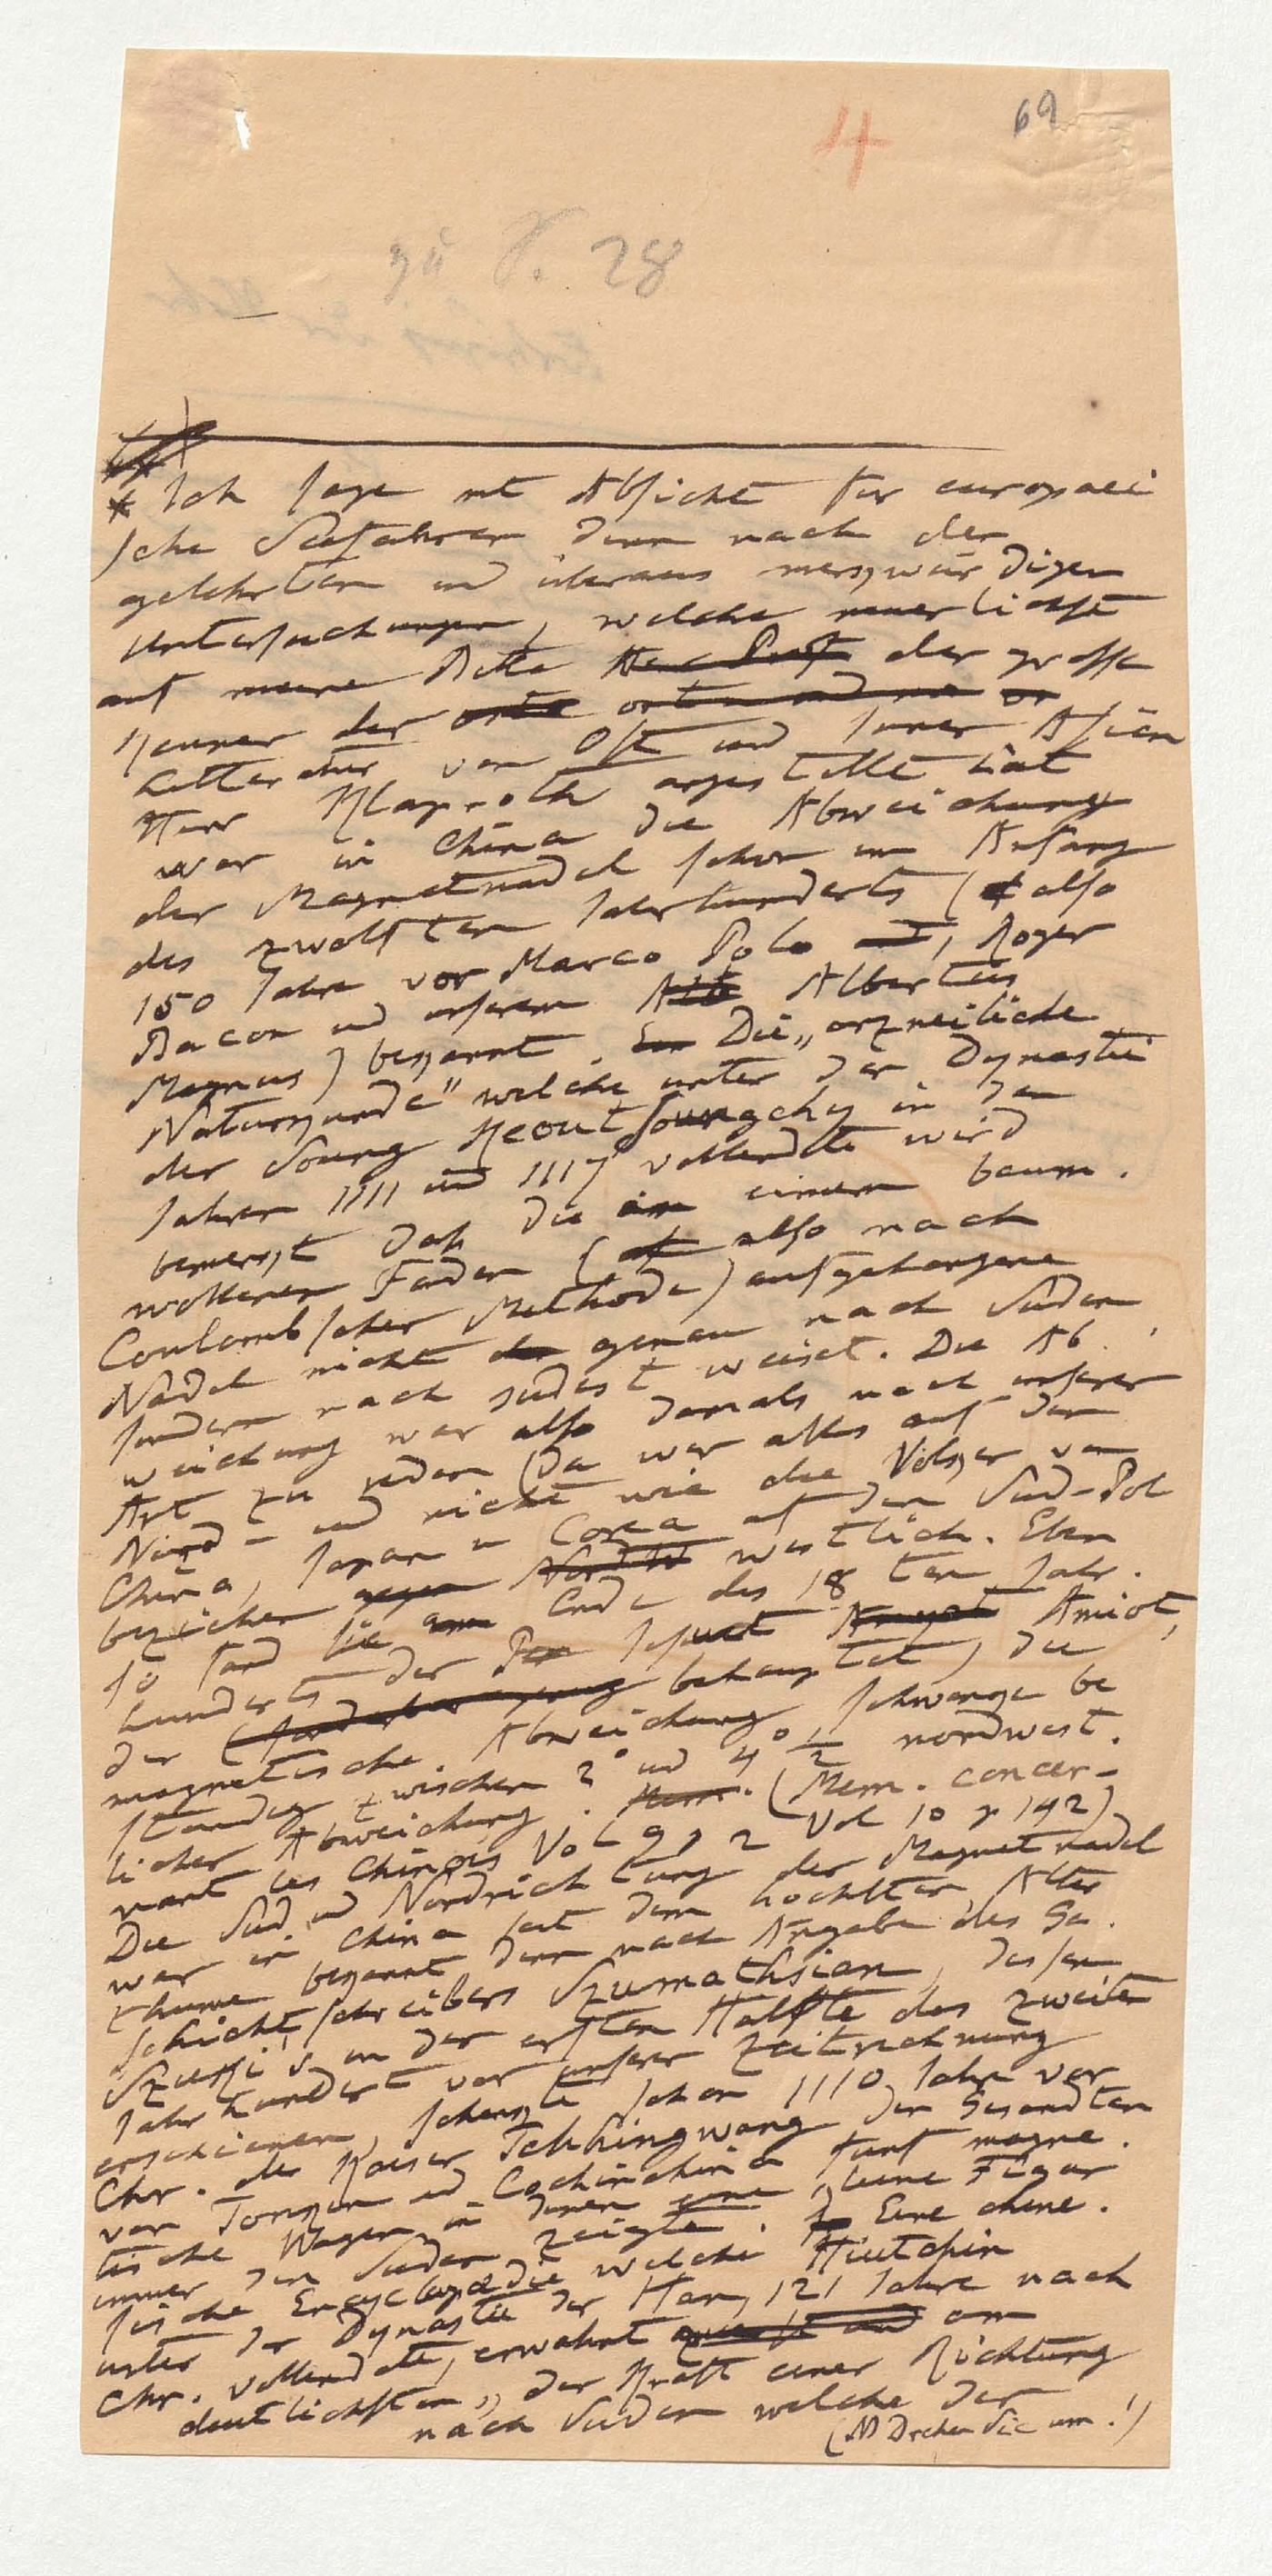 69
4
zu S. 28
* Ich sage mit Absicht fur europaei
sche Seefahrer denn nach der
gelehrten und überaus merkwürdigen
Untersuchungen, welche neuerlichst
auf meine Bitte Herr Prof der grosse
Kenner der
Litteratur von Ost und Inner Asien
Herr Klaproth angestellt hat
war in China die Abweichung
der Magnetnadel schon im Anfang
des zwolften Jahrhunderts (also
150 Jahre vor Marco Polo und, Roger
Bacon und unserem Alb Albertus
Magnus) bekannt. Ein Die „arzneiliche
Naturkunde" welche unter der Dynastie
der Soung Keoutsoungchy in den
Jahren 1111 und 1117 vollendete wird
bemerkt daß die an einem baum.
wollenen Faden (also nach
Coulombscher Methode) aufgehangene
Nadel nicht genau nach Suden
sondern nach sudost weiset. Die Ab.
weichung war also damals nach unserer
Art zu reden (da wir alles auf den
Nord- und nicht wie die Volker von
China, Japan u Corea auf den Sud-Pol
beziehen gegen NordW westlich. Eben
so fand sie am Ende des 18 ten Jahr.
hunderts der Pa Jesuit Amyot Amiot,
der behauptet, die
magnetische Abweichung schwanke be
standig zwischen 2° und 4° ½ nordwest.
licher Abweichung. Mem. (Mem. concer-
nant les Chinois Vol 9 p 2 Vol 10 p 142)
Die Sud und Nordrichtung der Magnetnadel
war in China seit dem hochsten Alter
thume bekannt denn nach Angabe des Ge.
schichtschreibers Szumathsian, dessen
Szuki's in der ersten Halfte des zweiten
Jahrhundert vor unserer Zeitrechnung
erschienen, schenkte schon 1110 Jahr vor
Chr. der Kaiser Tchhingwang den Gesandten
von Tonkin und Cochinchina funf magne.
tische Wagen in denen eine kleine Figur
immer den Suden zeigte. Eine chine.
sische Encyclopædie welche Hiutchin
unter der Dynastie der Han, 121 Jahre nach
Chr. vollendete, erwahnt zuerst und am
deutlichsten „der Kraft einer Richtung
nach Suden welche der
(NB Drehen Sie um!)